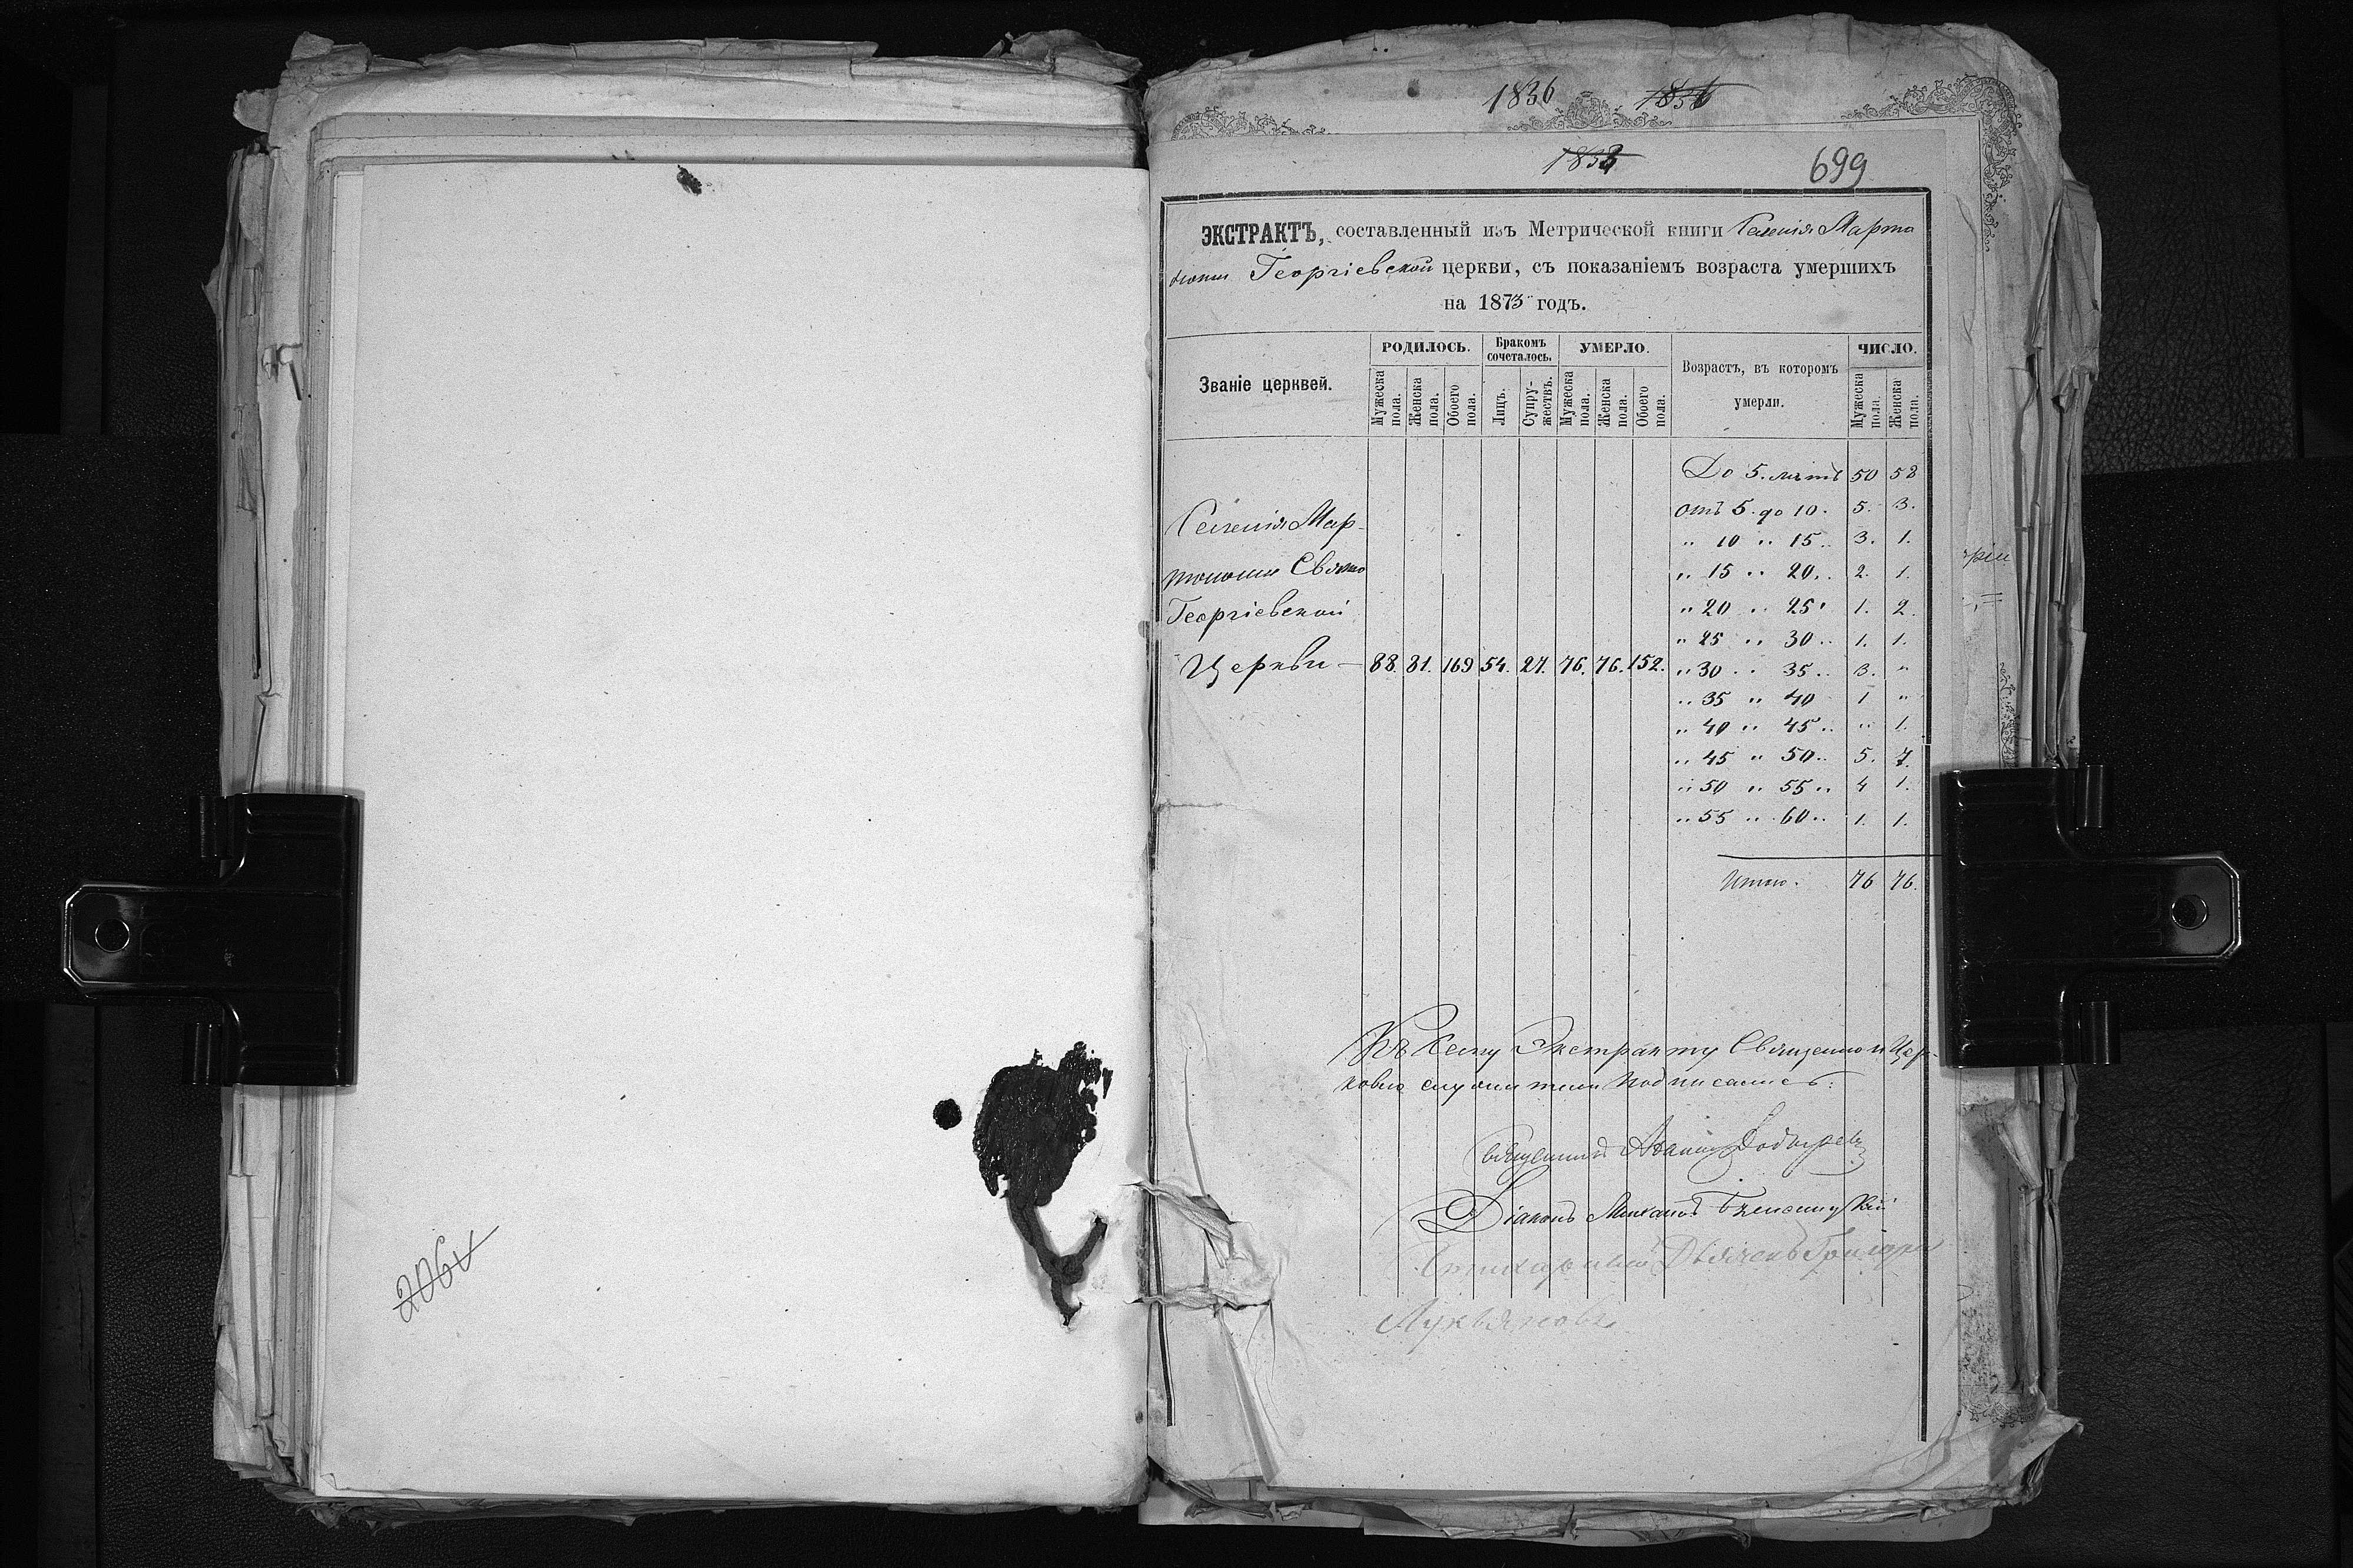 206 v
1836 1836
1838
699
ЭКСТРАКТЪ, составленный изъ Метрической книги Селенія Марто
ноши Георгіевской церкви, съ показаніемъ возраста умершихъ
на 1873 годъ.
Званіе церквей. РОДИЛОСЬ. Бракомъ сочеталось. УМЕРЛО. Возрастъ, въ которомъ умерли. ЧИСЛО.
Мужеска пола. Женска пола. Обоего пола. Лицъ. Супружествъ. Мужеска пола. Женска пола. Обоего пола. Мужеска пола. Женска пола.
До 5. летъ 50 58
отъ 5. до 10. 5. 3.
Селенія Мар-
" 10 " 15 " 3. 1.
тоноши Свято
" 15 " 20 " 2. 1.
Георгіевской
" 20 " 25 " 1. 2.
" 25 " 30 " 1. 1.
Церкви — 88. 81. 169 54. 27. 76. 76. 152. " 30 " 35 " 3. "
" 35 " 40 1 "
" 40 " 45 " " 1.
" 45 " 50 " 5. 7.
" 50 " 55 " 4 1.
" 55 " 60 " 1. 1.
Итого. 76 76.
Къ сему Экстракту Священно и Цер-
ковно служители подписались:
Священникъ
Діаконъ Михаилъ
Стихарный Дьячекъ Григорій
Лукьяновъ